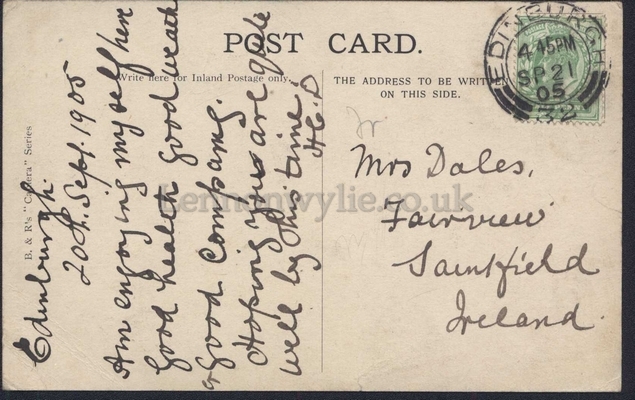 POST CARD.
Write here for Inland Postage only.
THE ADDRESS TO BE WRITTEN
ON THIS SIDE.
B. & R's "Camera" Series
EDINBURGH
4.45PM
SP 21
05
Edinburgh.
20th. Sept. 1905
Am enjoying myself here
Good health good weath
& Good Company.
Hoping you are quite
well by this time.
Mrs Dales,
Fairview
Saintfield
Ireland.
Lennonwylie.co.uk